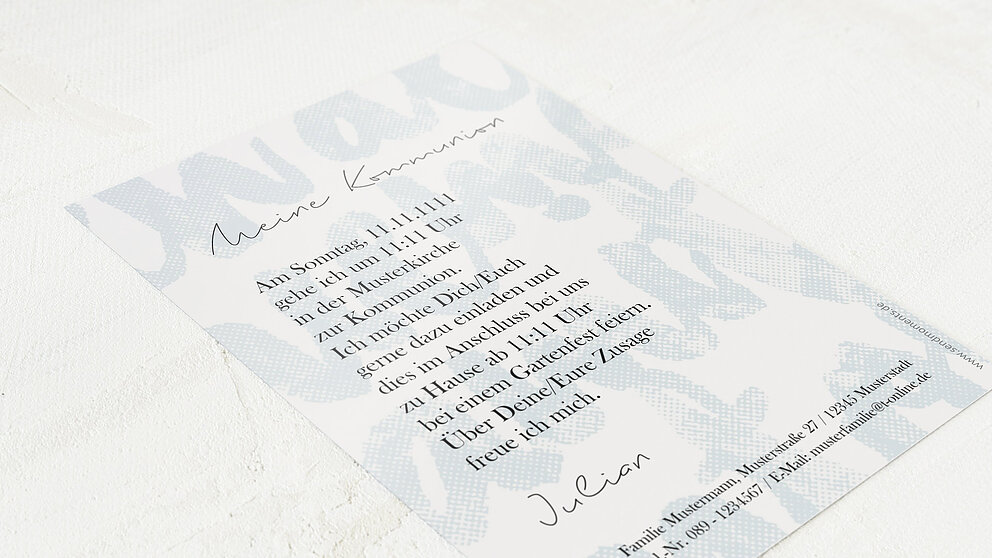 Meine Kommunion
Am Sonntag, 11.11.1111
gehe ich um 11:11 Uhr
in der Musterkirche
zur Kommunion.
Ich möchte Dich/Euch
gerne dazu einladen und
dies im Anschluss bei uns
zu Hause ab 11:11 Uhr
bei einem Gartenfest feiern.
Über Deine/Eure Zusage
freue ich mich.
Julian
Familie Mustermann, Musterstraße 27 / 12345 Musterstadt
l.-Nr. 089 - 1234567 / E-Mail: musterfamilie@t-online.de
www.sendmoments.de